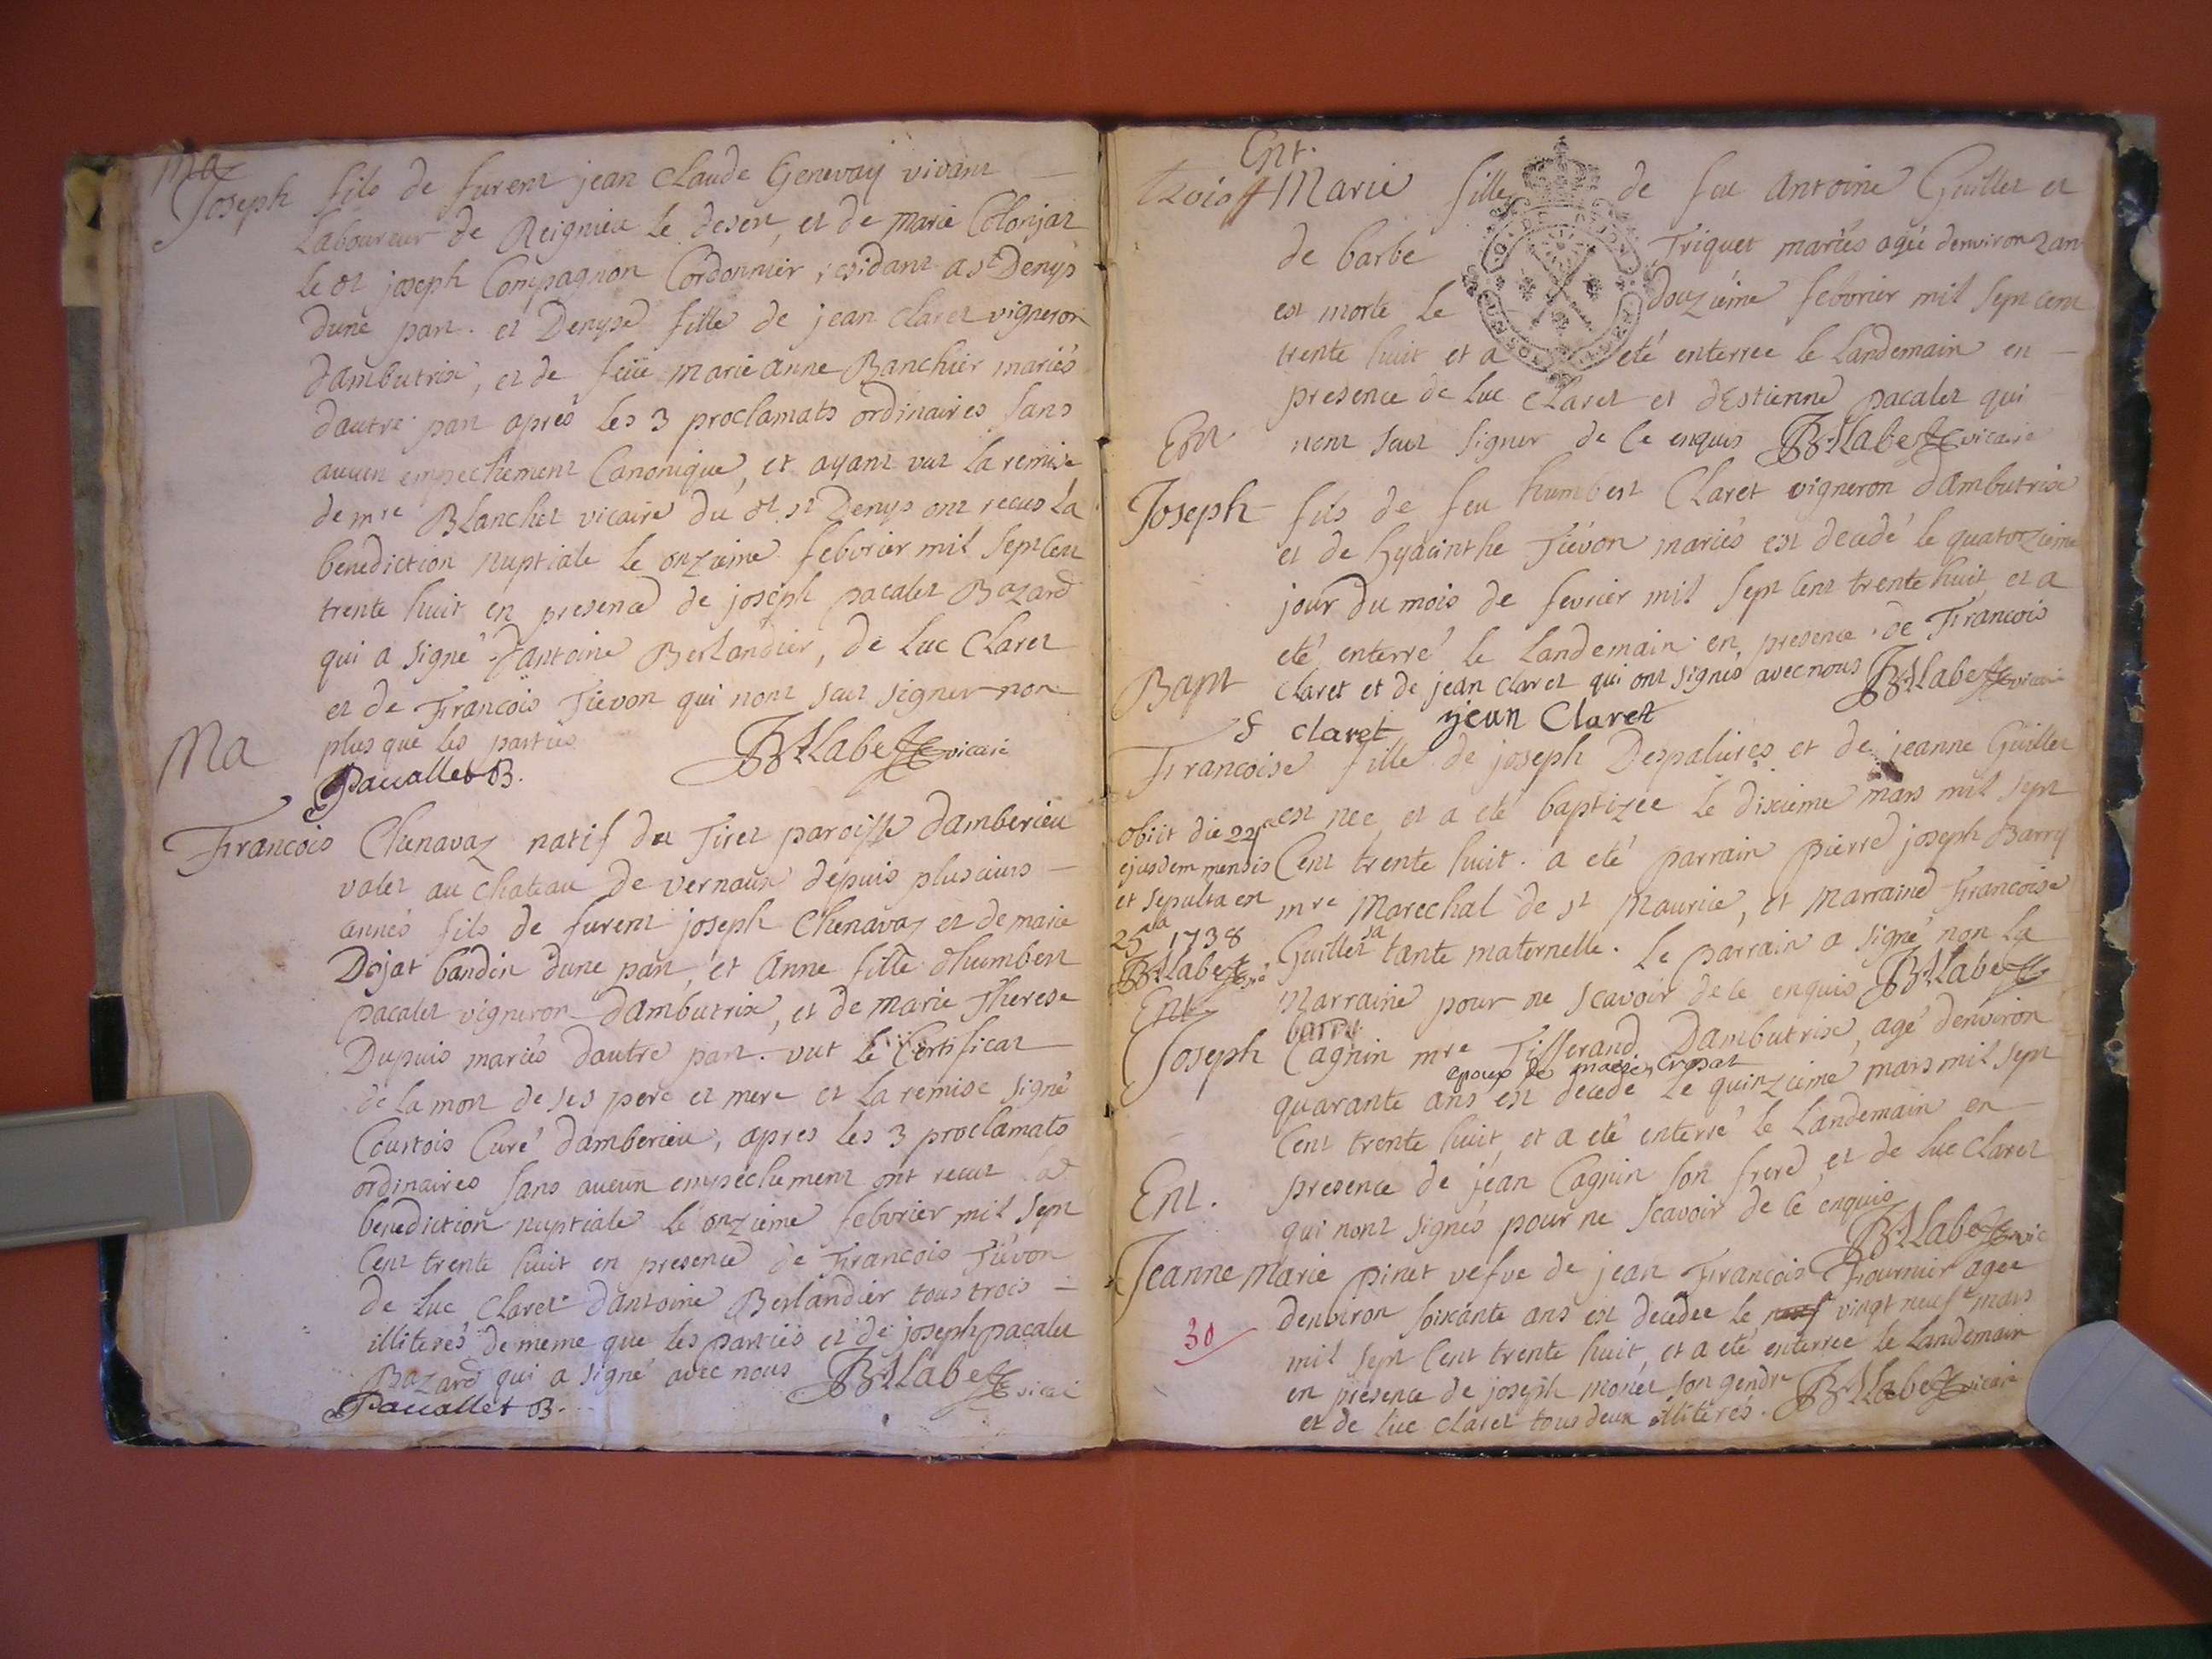 Ma
Joseph fils de furent jean Claude Genevay vivant
Laboureur de Reignieu le desert, et de marie Colonjat
le dt joseph Compagnon Cordonnier, residant a st Denys
dune part. et Denyse fille de jean Claret vigneron
dambutrix, et de feüe marie anne Banchier mariés
dautre part apres les 3 proclamats ordinaires sans
aucun empechement Canonique, et ayant vut la remise
de mre Blanchet vicaire du dt st Denys ont recus la
benediction nuptiale le onzieme febvrier mil sept cent
trente huit en presence de joseph pacalet Bazard
qui a signé dantoine Berlandier, de Luc Claret
et de François Tievon qui nont scut signer non
plus que les parties
Pacallet B. Labe vicaire
Ma
François Chenavaz natif du Tiret paroisse damberieu
valet au chateau de vernaux depuis plusieurs
années fils de furent joseph Chenavaz et de marie
Dojat bandin dune part, et Anne fille dhumbert
pacalet vigneron dambutrix, et de marie Therese
Dupuis mariés dautre part. vut le Certificat
de la mort de ses pere et mere et la remise signé
Courtois Curé damberieu, apres les 3 proclamats
ordinaires sans aucun empechement ont recut la
benediction nuptiale le onzieme febvrier mil sept
Cent trente huit en presence de François Tievon
de Luc Claret dantoine Berlandier tous trois
illiterés de meme que les parties et de joseph pacalet
Bazard qui a signé avec nous Labe vicai
Pacallet B.
Ent.
trois Marie fille de feu Antoine Guillet et
de barbe Triquet mariés agée denviron 2 an
est morte le douzieme febvrier mil sept cent
trente huit et a eté enterree le Landemain en
presence de Luc Claret et dEstienne pacalet qui
nont scut signer de ce enquis Labe vicaire
Ent
Joseph fils de feu humbert Claret vigneron dambutrix
et de hyacinthe Tievon mariés est decedé le quatorzieme
jour du mois de fevrier mil sept cent trente huit et a
eté enterré le Landemain en presence de François
Claret et de jean Claret qui ont signés avec nous Labe vicai
Bapt
f claret jean Claret
Francoise fille de joseph Despalieres et de jeanne Guillet
est nee, et a eté baptizee le dixieme mars mil sept
Cent trente huit. a eté parrain pierre joseph Barry
mre Marechal de st Maurice, et Marraine Francoise
Guillet sa tante maternelle. Le parrain a signé non la
Marraine pour ne scavoir de ce enquis Labe
barry
obiit die 24a
ejusdem mensis
et sepulta est
25ta 1738
Labe
Ent.
Joseph Cagnin mre Tisserand Dambutrix, agé denviron
epoux de marie Crosat
quarante ans est decedé Le quinzieme mars mil sept
Cent trente huit, et a eté enterré le Landemain en
presence de jean Cagnin son frere, et de Luc Claret
qui nont signés pour ne scavoir de ce enquis
Labe vic
Ent.
Jeanne marie pinet vefve de jean François Fournier agee
denviron soixante ans est decedee le neuf vingt neuf e mars
mil sept Cent trente huit, et a eté enterree le Landemain
en presence de joseph monet son gendre Labe vicaire
et de Luc Claret tous deux illiterés.
30